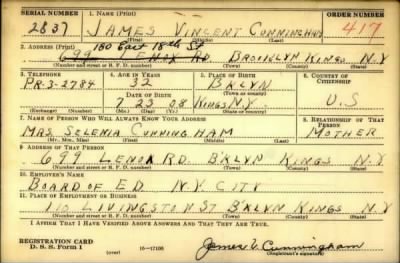 SERIAL NUMBER 1. NAME (Print) ORDER NUMBER
2837 JAMES VINCENT CUNNINGHAM 417
(First) (Middle) (Last)
2. ADDRESS (Print) 180 East 18th St
699 LENOX RD BROOKLYN KINGS N.Y
(Number and street or R. F. D. number) (Town) (County) (State)
3. TELEPHONE 4. AGE IN YEARS 5. PLACE OF BIRTH 6. COUNTRY OF CITIZENSHIP
PR-3-2784 32 BKLYN
DATE OF BIRTH (Town or county)
7 23 08 KINGS N.Y. U.S
(Exchange) (Number) (Mo.) (Day) (Yr.) (State or country)
7. NAME OF PERSON WHO WILL ALWAYS KNOW YOUR ADDRESS 8. RELATIONSHIP OF THAT PERSON
MRS. SELENIA CUNNINGHAM MOTHER
(Mr., Mrs., Miss) (First) (Middle) (Last)
9. ADDRESS OF THAT PERSON
699 LENOX RD. BKLYN KINGS N.Y
(Number and street or R. F. D. number) (Town) (County) (State)
10. EMPLOYER'S NAME
BOARD OF ED N.Y. CITY
11. PLACE OF EMPLOYMENT OR BUSINESS
110 LIVINGSTON ST BKLYN KINGS N.Y
(Number and street or R. F. D. number) (Town) (County) (State)
I AFFIRM THAT I HAVE VERIFIED ABOVE ANSWERS AND THAT THEY ARE TRUE.
REGISTRATION CARD
D. S. S. Form 1 (over) 16-17105 James V. Cunningham
(Registrant's signature)